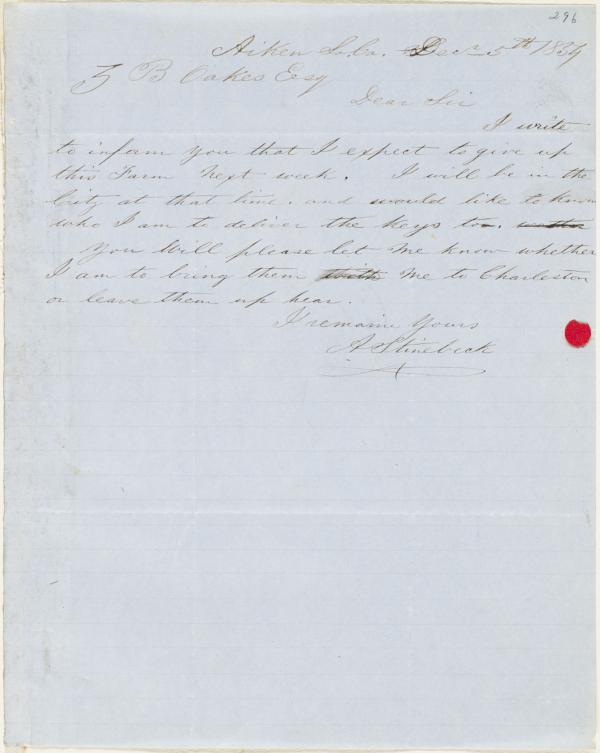 296
Aiken So. Ca. Decr 5th 1854
Z B Oakes Esq
Dear Sir
I write
to inform you that I expect to give up
this Farm next week. I will be in the
City at that time. and would like to know
who I am to deliver the keys to.
You Will please let me know whether
I am to bring them with me to Charleston
or leave them up hear.
I remain Yours
A Stinebeck